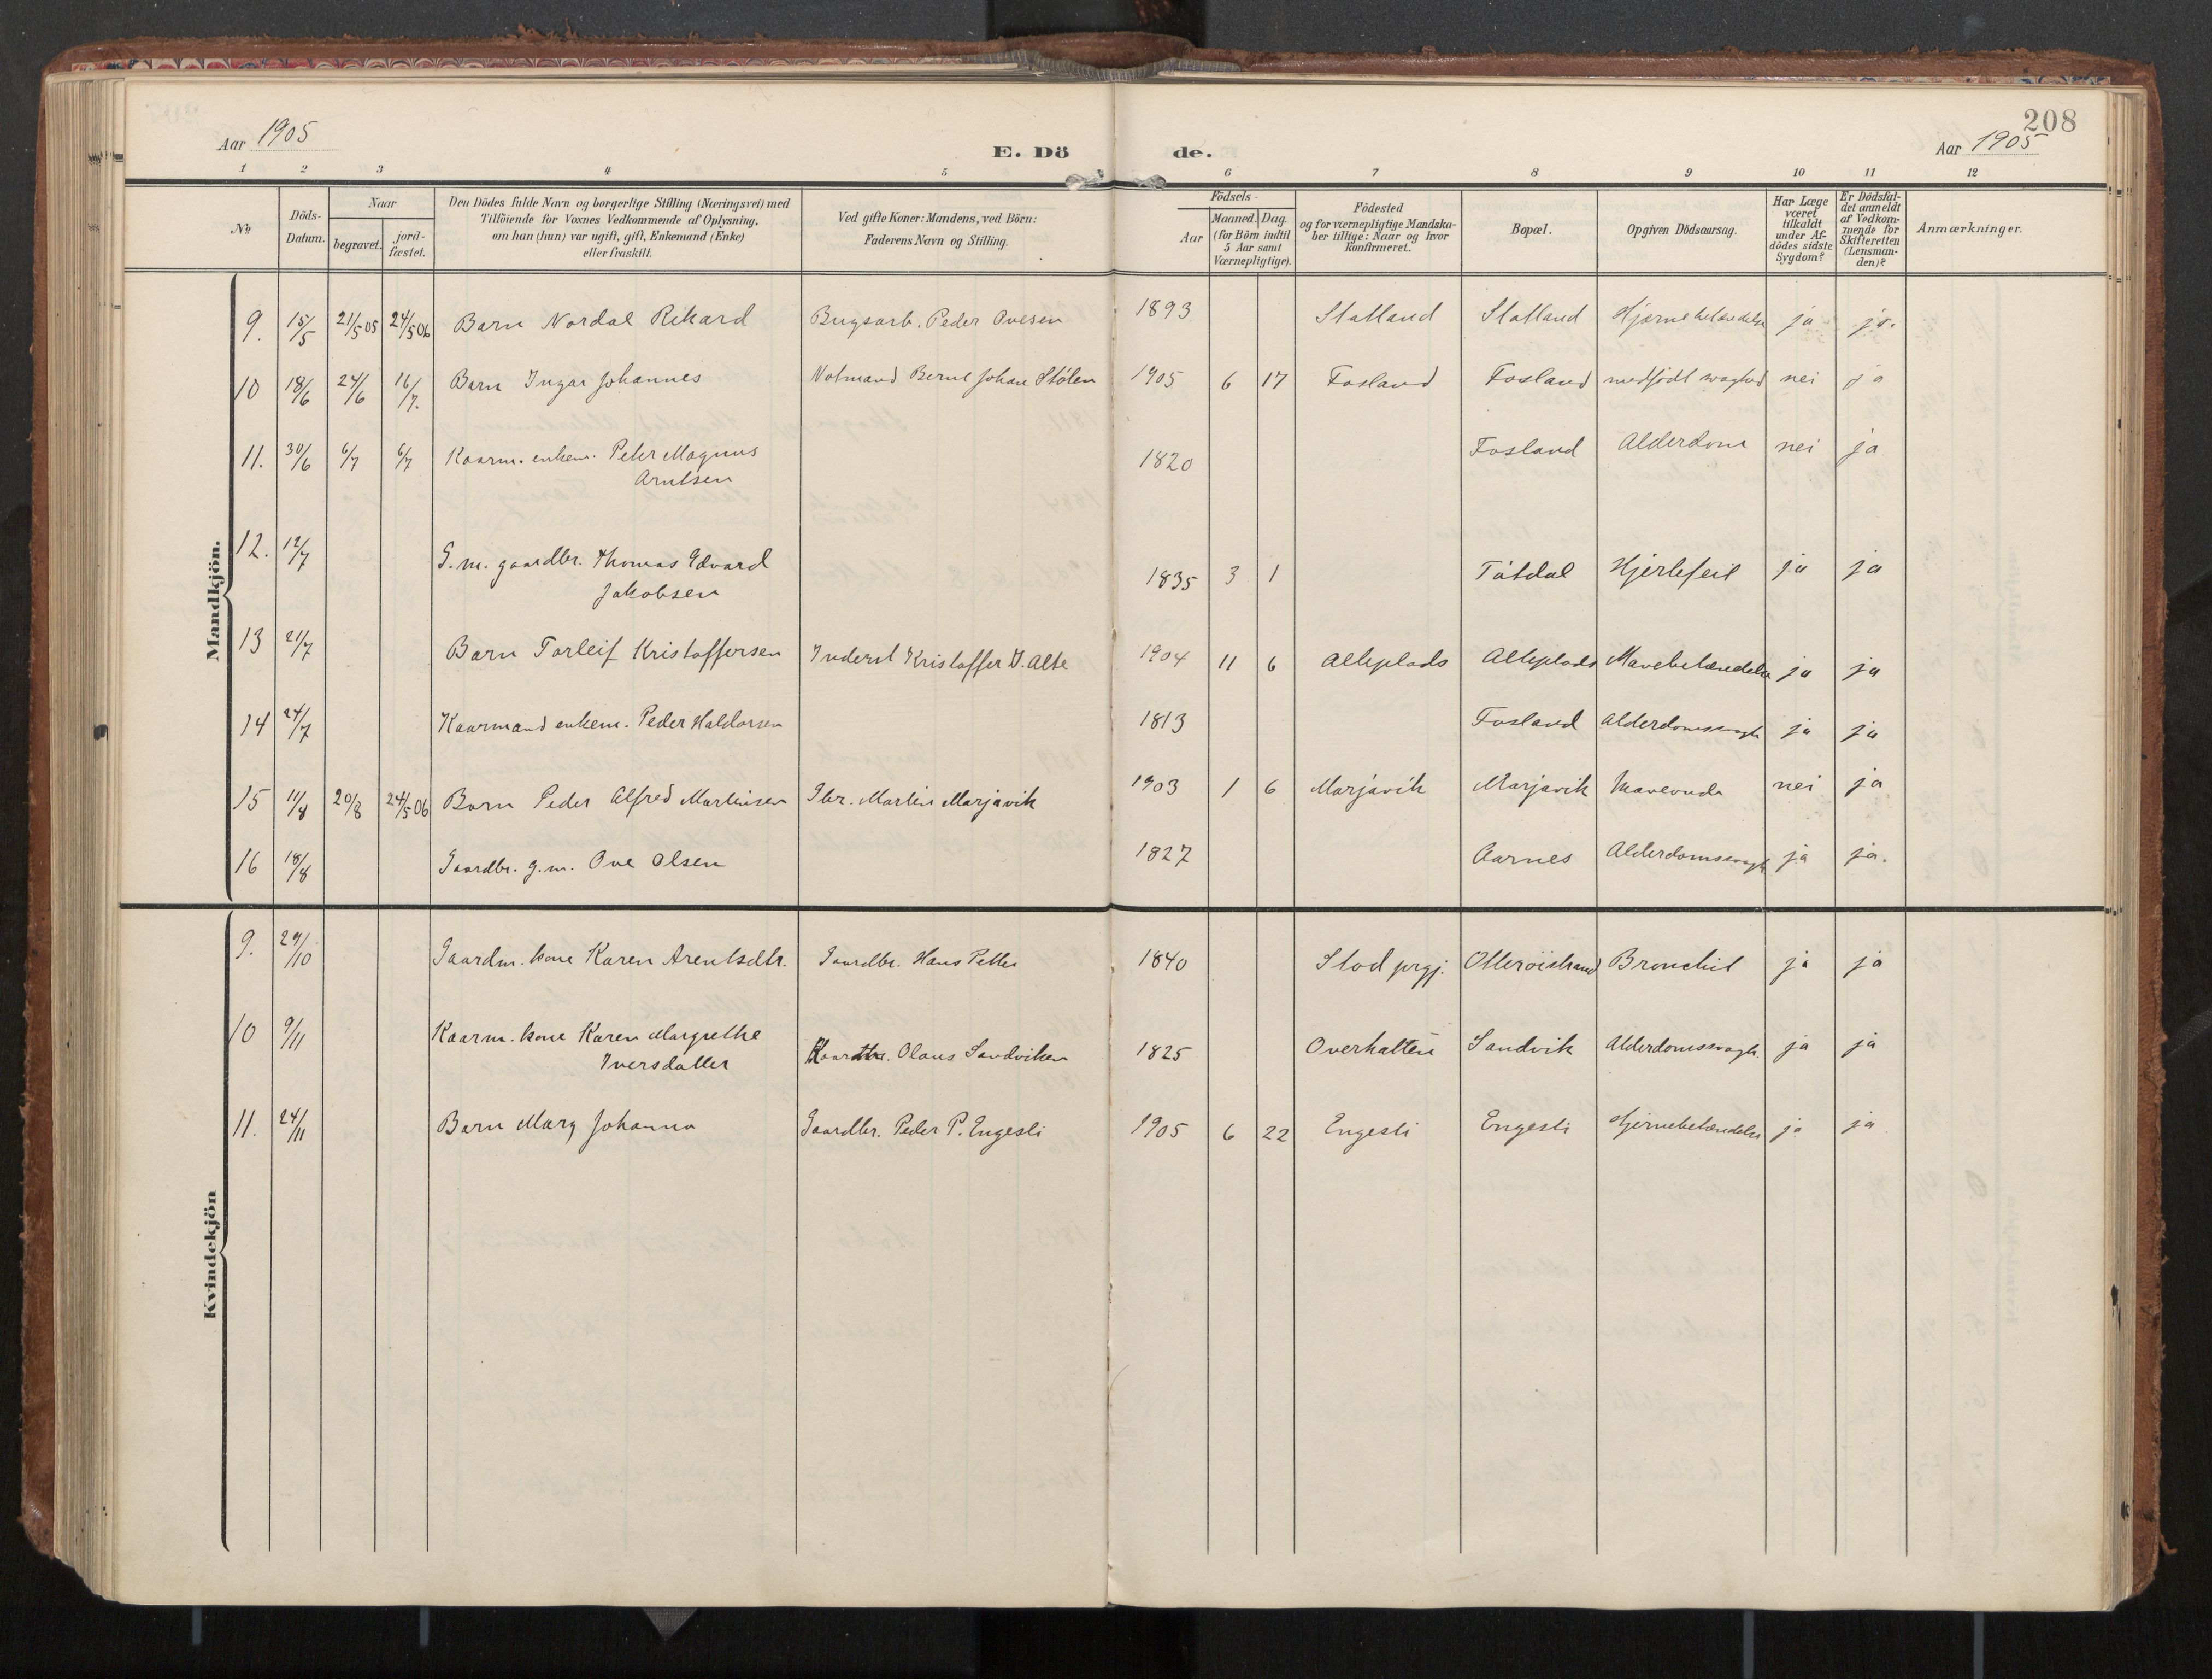 208
Aar 1905
E. Dö de.
Aar 1905
1 2 3 4 5 6 7 8 9 10 11 12
№
Döds-Datum.
Naar
begravet.
jord-fæstet.
Den Dödes fulde Navn og borgerlige Stilling (Næringsvei) med
Tilföiende for Voxnes Vedkommende af Oplysning,
om han (hun) var ugift, gift, Enkemand (Enke)
eller fraskilt.
Ved gifte Koner: Mandens, ved Börn:
Faderens Navn og Stilling.
Födsels-
Aar
Maaned. Dag.
(for Börn indtil
5 Aar samt
Værnepligtige).
Födested
og for værnepligtige Mandska-
ber tillige: Naar og hvor
konfirmeret.
Bopæl.
Opgiven Dödsaarsag.
Har Læge
været
tilkaldt
under Af-
dödes sidste
Sygdom?
Er Dödsfal-
det anmeldt
af Vedkom-
mende for
Skifteretten
(Lensman-
den)?
Anmærkninger.
Mandkjön.
9. 15/5 21/5 05 24/5 06 Barn Nordal Rikard Bugsarb. Peder Ovesen 1893 Statland Statland Hjernebetændelse ja ja.
10 18/6 24/6 16/7. Barn Ingar Johannes Notmand Bernt Johan Stölen 1905 6 17 Fosland Fosland medfödt svaghed nei ja
11. 30/6 6/7 6/7 Kaarm. enkem. Peter Magnus
Arntsen 1820 Fosland Alderdom nei ja
12. 12/7 G. m. gaardbr. Thomas Edvard
Jakobsen 1835 3 1 Tötdal Hjertefeil ja ja
13 21/7 Barn Torleif Kristoffersen Inderst Kristoffer D. Alte 1904 11 6 Alteplads Alteplads Mavebetændelse ja ja
14 24/7 Kaarmand enkem. Peder Haldorsen 1813 Fosland Alderdomssvagh ja ja
15 11/8 20/8 24/5 06 Barn Peder Alfred Martinsen Gbr. Martin Marjavik 1903 1 6 Marjavik Marjavik Maveonde nei ja
16 18/8 Gaardbr. g. m. Ove Olsen 1827 Aarnes Alderdomssvagh ja ja.
Kvindekjön
9. 29/10 Gaardm. kone Karen Arentsdtr. Gaardbr. Hans Petter 1840 Stod prgj. Otteröistrand Bronchit ja ja
10 9/11 Kaarm. kone Karen Margrethe
Iversdatter Olaus Sandviken 1825 Overhallen Sandvik Alderdomssvagh. ja ja
11. 24/11 Barn Mary Johanna Gaardbr. Peder P. Engesli 1905 6 22 Engesli Engesli Hjernebetændelse ja ja